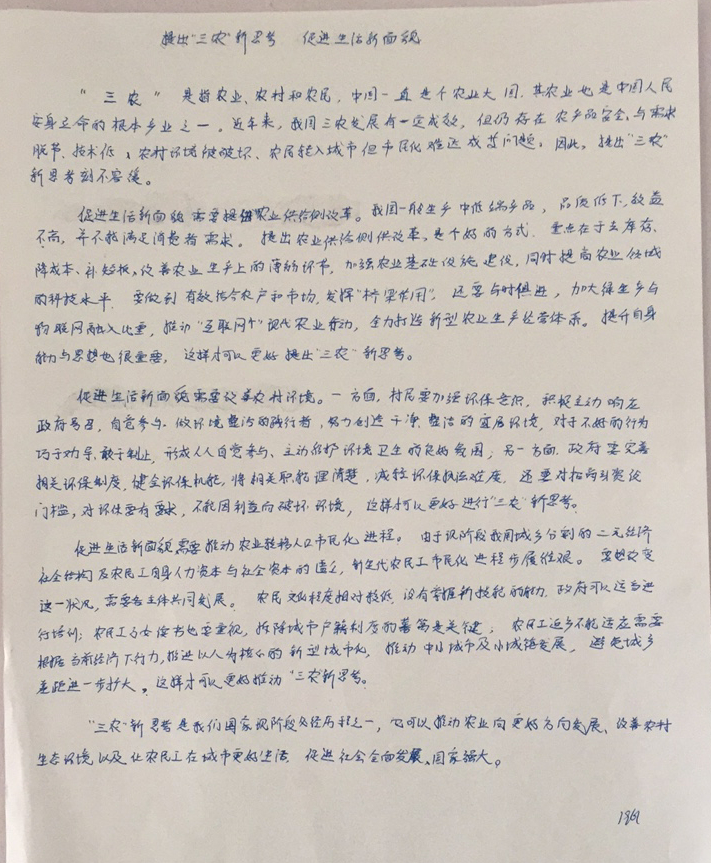 提出"三农"新思考 促进生活新面貌
"三农"是指农业、农村和农民，中国一直是个农业大国，其农业也是中国人民
安身立命的根本产业之一。近年来，我国三农发展有一定成效，但仍存在农产品安全与需求
脱节、技术低、农村环境被破坏、农民转入城市但市民化难达成等问题。因此，提出"三农"
新思考刻不容缓。
促进生活新面貌需要推进农业供给侧改革。我国一般生产中低端产品，品质低下，效益
不高，并不能满足消费者需求。提出农业供给侧供改革，是个好的方式。重点在于去库存、
降成本、补短板，改善农业生产上的薄弱环节，加强农业基础设施建设，同时提高农业领域
的科技水平。要做到有效结合农户和市场，发挥"桥梁作用"。还要与时俱进，加大绿生产与
物联网融入比重，推动"互联网+"现代农业行动，全力打造新型农业生产经营体系。提升自身
能力与思想也很重要，这样才可以更好提出"三农"新思考。
促进生活新面貌需要改善农村环境。一方面，村民要加强环保意识，积极主动响应
政府号召，自觉参与，做环境整治的践行者，努力创造干净、整洁的宜居环境，对于不好的行为
巧于劝导、敢于制止，形成人人自觉参与、主动维护环境卫生的良好氛围；另一方面，政府要完善
相关环保制度，健全环保机能，将相关职能理清楚，减轻环保执法难度，还要对招商引资设
门槛，对环保要有要求，不能因利益而破坏环境，这样才可以更好进行"三农"新思考。
促进生活新面貌需要推动农业转移人口市民化进程。由于现阶段我国城乡分割的二元经济
社会结构及农民工自身人力资本与社会资本的匮乏，新生代农民工市民化进程步履维艰。要想改变
这一状况，需要各主体共同发展。农民文化程度相对较低，没有掌握新技能的能力，政府可以适当进
行培训；农民工子女读书也要重视，拆除城市户籍制度的藩篱是关键；农民工返乡不能适应需要
根据当前经济下行力，推进以人为核心的新型城市化，推动中小城市及小城镇发展，避免城乡
差距进一步扩大。这样才可以更好推动"三农新思考。
"三农"新思考是我们国家现阶段必经历程之一，它可以推动农业向更好方向发展、改善农村
生态环境以及让农民工在城市更好生活，促进社会全面发展、国家强大。